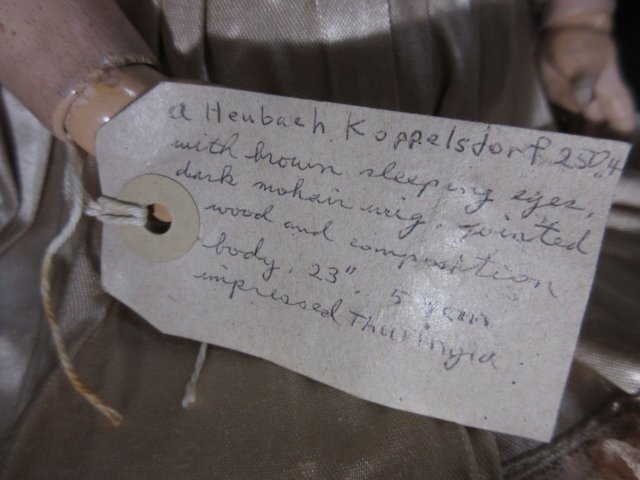 a Heubach Koppelsdorf 250.4
with brown sleeping eyes,
dark mohair wig. jointed
wood and composition
body. 23". 5 cm
impressed Thuringia